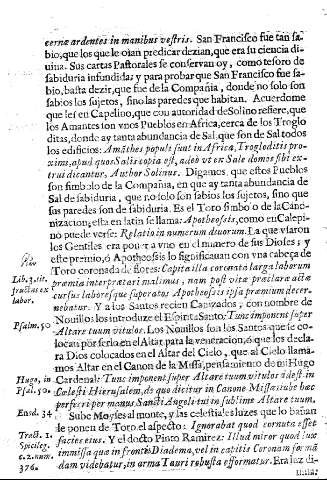 cernæ ardentes in manibus vestris. San Francisco fue tan sa-
bio, que los que le oian predicar dezian, que era su ciencia di-
uina. Sus cartas Pastorales se conservan oy, como tesoro de
sabiduria infundidas y para probar que San Francisco fue sa-
bio, basta dezir, que fue de la Compañia, donde no solo son
sabios los sujetos, sino las paredes que habitan. Acuerdome
que leí en Capelino, que con autoridad de Solino refiere, que
los Amantes son unos Pueblos en Africa, cerca de los Troglo
ditas, donde ay tanta abundancia de Sal, que son de Sal todos
los edificios: Amãthes populi sunt in Africa, Trogloditis pro-
ximi, apud quos Salis copia est, adeò vt ex Sale domos sibi ex-
truãt dicantur, Author Solinus. Digamos, que estos Pueblos
son simbolo de la Compañia, en que ay tanta abundancia de
Sal de sabiduria, que no solo son sabios los sujetos, sino que
sus paredes son de sabiduria. Es el Toro simbolo de la Cano-
nizacion, esta en latin se llama: Apotheosis, como en Calepi-
no puede verse: Relatio in numerum deorum. La que vsaron
los Gentiles era poner a vno en el numero de sus Dioses; y
este premio, ó Apotheosis lo significauan con vna cabeça de
Toro coronada de flores: Capita illa coronata larga laborum
præmia interpretari malimus, nam post vitæ præclarè actæ
cursus labores que superatos Apotheosis ipsa præmium decer-
nebatur. Y a los Santos recien Canonizados, con nombre de
Nouillos los introduce el Espiritu Santo: Tunc imponent super
Altare tuum vitulos. Los Nouillos son los Santos que se co-
locan por serlo en el Altar para la veneracion, ó que los decla
ra Dios colocados en el Altar del Cielo, que al Cielo llama-
mos Altar en el Canon de la Missa, pensamiento de mi Hugo
Cardenal: Tunc imponent super Altare tuum vitulos id est in
Cœlesti Hierusalem, de quo dicitur in Canone Missæ iube hæc
perferri per manus Sancti Angeli tui in sublime Altare tuum.
Sube Moyses al monte, y las celestiales luzes que lo bañan
le ponen de Toro el aspecto: Ignorabat quod cornuta esset
facies eius. Y el docto Pinto Ramirez: Illud miror quod lux
immissa quæ in frontis Diadema, vel in capitis Coronam for mã
dam videbatur, in arma Tauri robusta efformatur. Era luz di-
Lib. 3. tit.
fructus ex
labor.
Psalm. 50
Hugo, in
Psal. 50.
Exod. 34
Tract. 1.
Spicileg.
c. 2. num.
376.